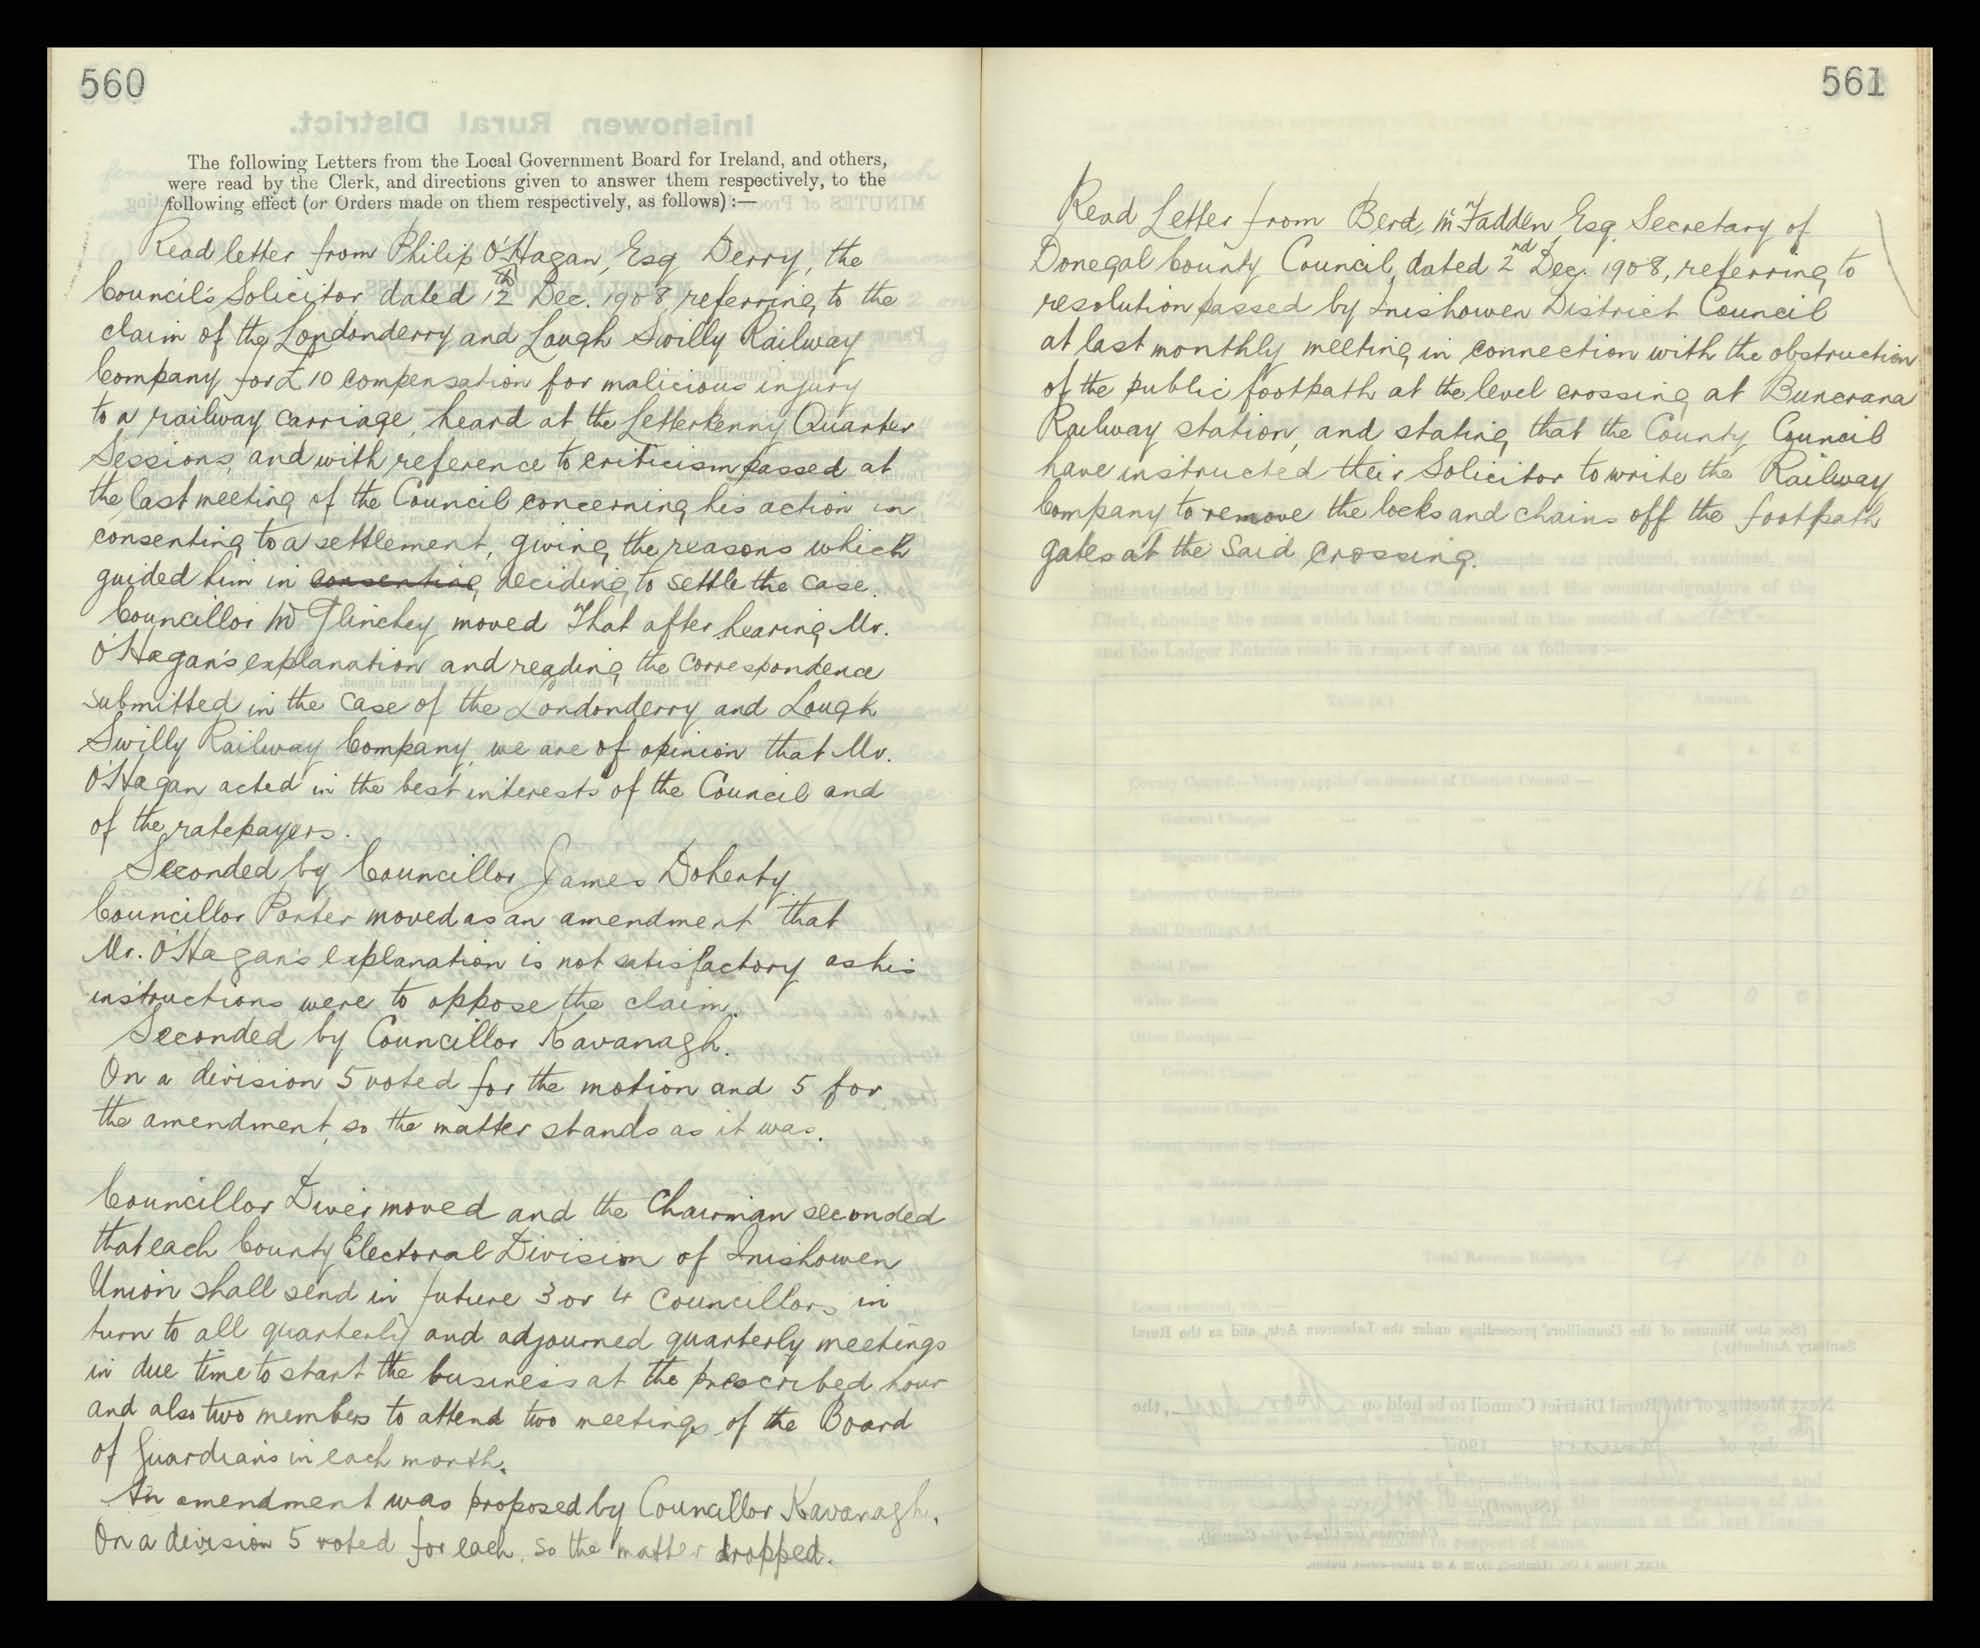 560
The following Letters from the Local Government Board for Ireland, and others,
were read by the Clerk, and directions given to answer them respectively, to the
following effect (or Orders made on them respectively, as follows) :—
Read letter from Philip O'Hagan, Esq Derry, the
Council's Solicitor dated 12th Dec. 1908, referring to the
claim of the Londonderry and Lough Swilly Railway
Company for £10 compensation for malicious injury
to a railway carriage, heard at the Letterkenny Quarter
Sessions, and with reference to criticism passed at
the last meeting of the Council concerning his action in
consenting to a settlement, giving the reasons which
guided him in consenting deciding to settle the case.
Councillor McGlinchey moved "That after hearing Mr.
O'Hagan's explanation and reading the correspondence
submitted in the case of the Londonderry and Lough
Swilly Railway Company, we are of opinion that Mr.
O'Hagan acted in the best interests of the Council and
of the ratepayers.
Seconded by Councillor James Doherty.
Councillor Porter moved as an amendment "that
Mr. O'Hagan's explanation is not satisfactory as his
instructions were to oppose the claim.
Seconded by Councillor Kavanagh.
On a division 5 voted for the motion and 5 for
the amendment, so the matter stands as it was.
Councillor Diver moved and the Chairman seconded
that each County Electoral Division of Inishowen
Union shall send in future 3 or 4 Councillors in
turn to all quarterly and adjourned quarterly meetings
in due time to start the business at the prescribed hour
and also two members to attend two meetings of the Board
of Guardians in each month.
An amendment was proposed by Councillor Kavanagh.
On a division 5 voted for each, so the matter dropped.
561
Read Letter from Berd. McFadden, Esq. Secretary of
Donegal County Council, dated 2nd Dec. 1908, referring to
resolution passed by Inishowen District Council
at last monthly meeting in connection with the obstruction
of the public footpath at the level crossing at Buncrana
Railway station, and stating that the County Council
have instructed their Solicitor to write the Railway
Company to remove the locks and chains off the footpath
gates at the said crossing.